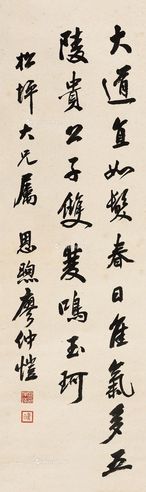 大道直如髮春日佳氣多五
陵貴公子雙雙鳴玉珂
松坪大兄屬 恩煦廖仲愷